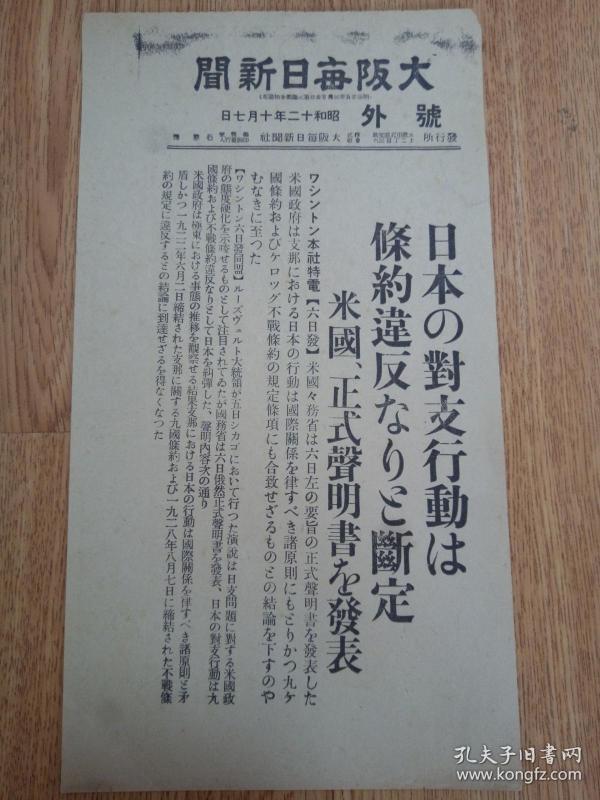 大阪每日新聞
號外
昭和十二年十月七日
發行所
大阪每日新聞社
日本の對支行動は
條約違反なりと斷定
米國、正式聲明書を發表
ワシントン本社特電【六日發】米國々務省は六日左の要旨の正式聲明書を發表した
米國政府は支那における日本の行動は國際關係を律すべき諸原則にもとりかつ九ケ
國條約およびケロッグ不戰條約の規定條項にも合致せざるものとの結論を下すのや
むなきに至つた
【ワシントン六日發同盟】ルーズヴェルト大統領が五日シカゴにおいて行つた演說は日支問題に對する米國政
府の態度硬化を示唆せるものとして注目されてゐたが國務省は六日俄然正式聲明書を發表、日本の對支行動は九
國條約および不戰條約違反なりとして日本を糾彈した、聲明內容次の通り
米國政府は極東における事態の推移を觀察せる結果支那における日本の行動は國際關係を律すべき諸原則と矛
盾しかつ一九二二年六月二日締結された支那に關する九國條約および一九二八年八月七日に締結された不戰條
約の規定に違反するとの結論に到達せざるを得なくなつた
孔夫子旧书网
www.kongfz.com